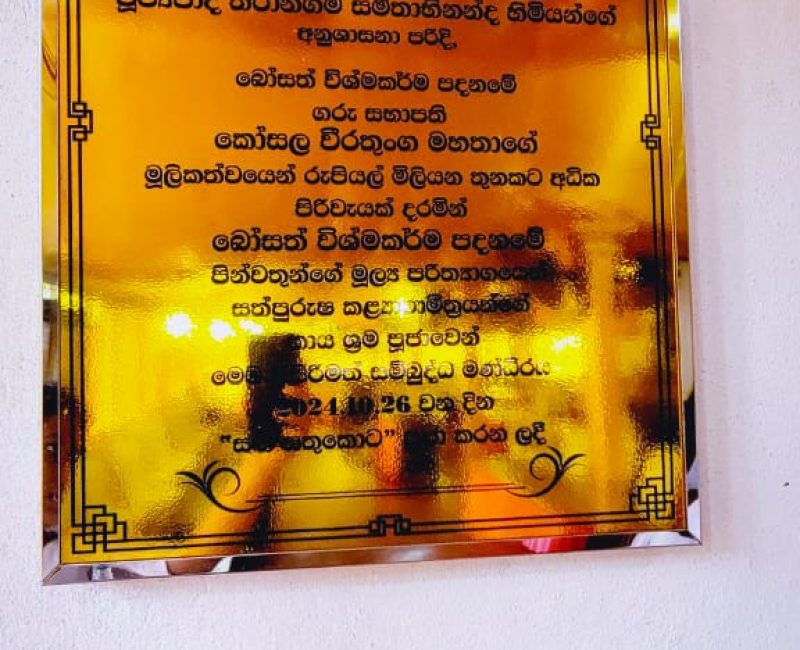 පූජ්‍යපාද තිරානගම සමිතාභිනන්ද හිමියන්ගේ
අනුශාසනා පරිදි,
බෝසත් විශ්මකර්ම පදනමේ
ගරු සභාපති
කෝසල වීරතුංග මහතාගේ
මූලිකත්වයෙන් රුපියල් මිලියන තුනකට අධික
පිරිවැයක් දරමින්
බෝසත් විශ්මකර්ම පදනමේ
පින්වතුන්ගේ මූල්‍ය පරිත්‍යාගයෙන්
සත්පුරුෂ කළ්‍යාණමිත්‍රයන්ගේ
කාය ශ්‍රම පූජාවෙන්
සම්බුද්ධ මණ්ඩිරය
2024.10.26 වන දින
කරන ලදී